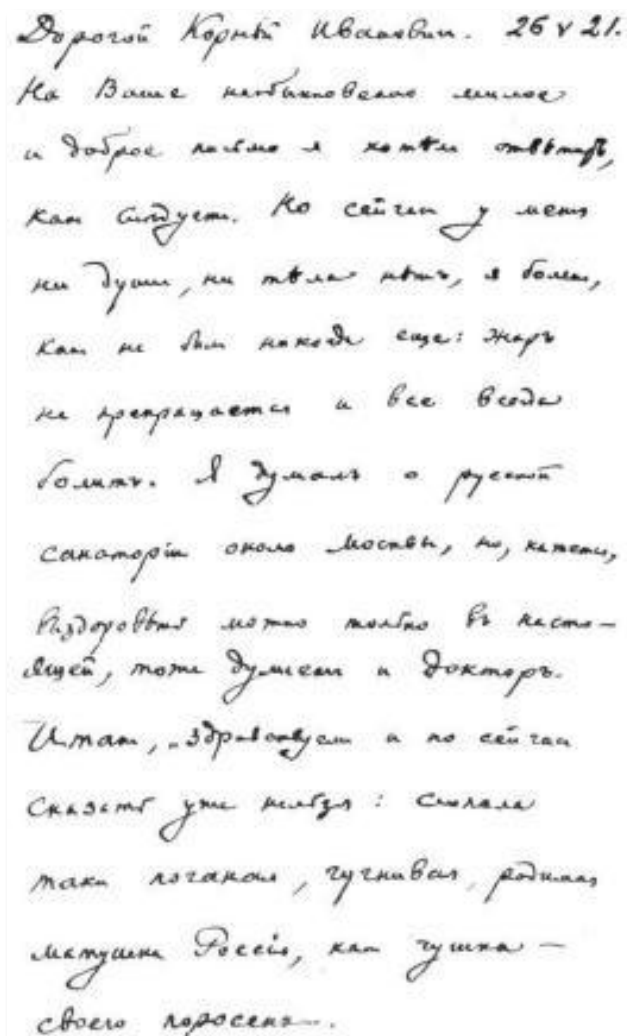 Дорогой Корнѣй Иванович. 26 V 21.
На Ваше необыкновенно милое
и доброе письмо я хотѣл отвѣтить,
как слѣдует. Но сейчас у меня
ни души, ни тѣла нѣтъ, я болен,
как не был никогда еще: жаръ
не прекращается и все всегда
болитъ. Я думалъ о русской
санаторiи около Москвы, но, кажется,
выздоровѣть можно только въ насто-
ящей, то же думает и докторъ.
Итак, „здравствуем и по сей час
сказать уже нельзя: слопала
таки поганая, гугнивая, родимая
матушка Россiя, как чушка —
своего поросенка.